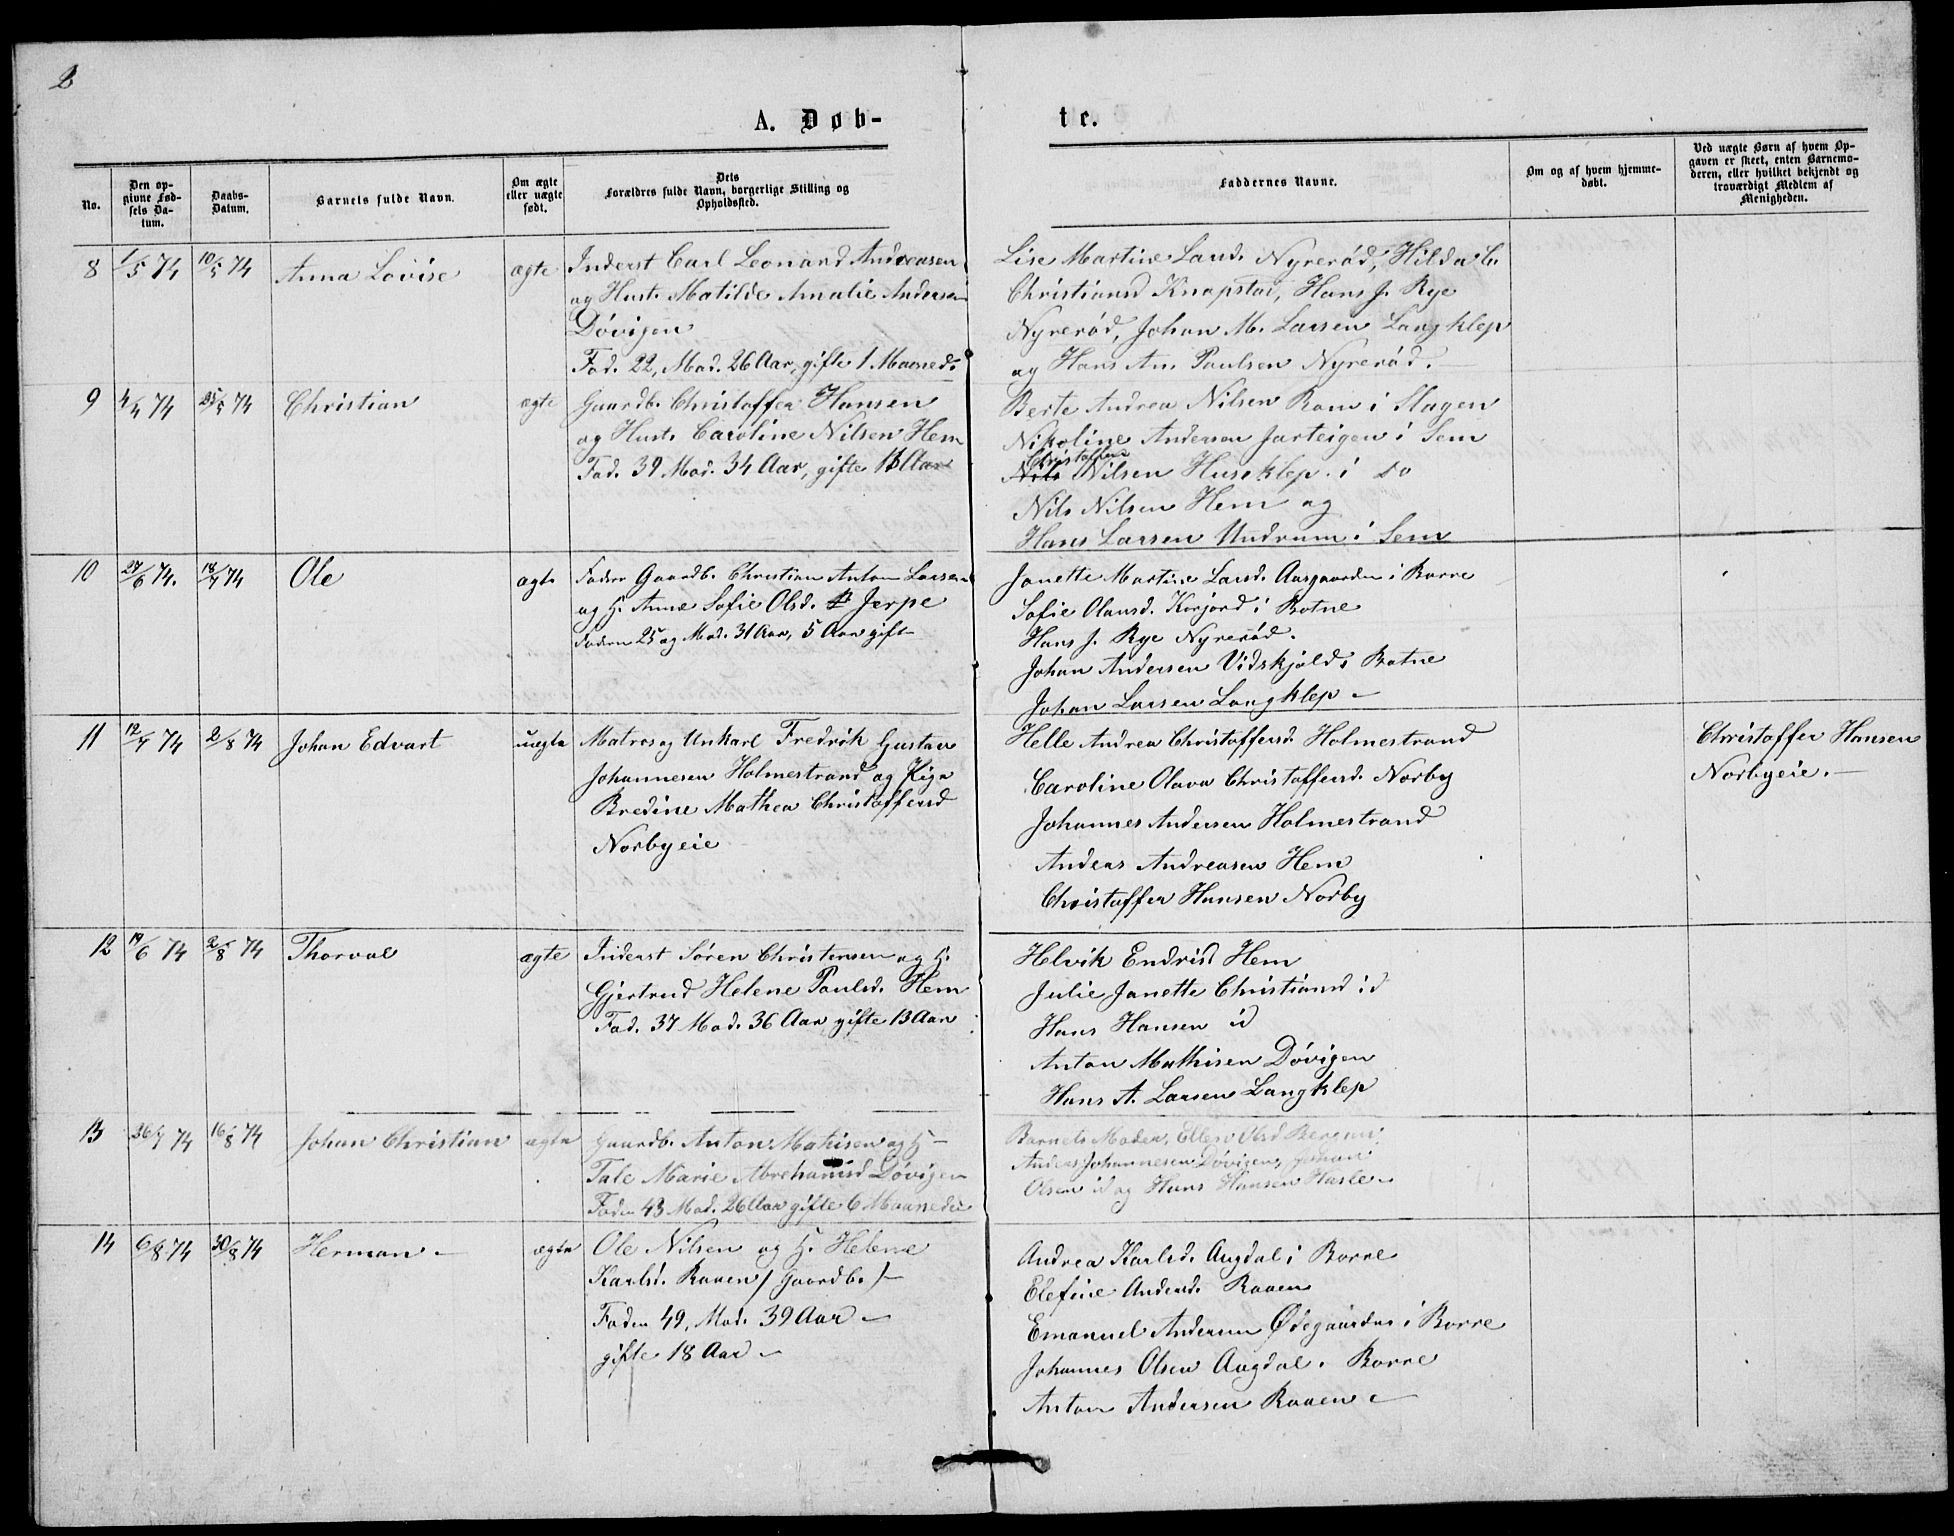 2
A. Døb-
te.
No.
Den op-
givne Fød-
sels Da-
tum.
Daabs-
Datum.
Barnets fulde Navn.
Om ægte
eller uægte
født.
Dets
Forældres fulde Navn, borgerlige Stilling og
Opholdssted.
Faddernes Navne.
Om og af hvem hjemme-
døbt.
Ved uægte Børn af hvem Op-
gaven er skeet, enten Barnemo-
deren, eller hvilket bekjendt og
troværdigt Medlem af
Menigheden.
8 1/5 74 10/5 74 Anna Lovise ægte Inderst Carl Leonard Andreasen
og Hust. Matilde Amalie Andersen
Døvigen
Fad. 22, Mod. 26 Aar, gifte 1 Maaned.
Lise Martine Larsd. Nyrerød, Hilda C.
Christiansd Knapstad, Hans J. Rye
Nyrerød, Johan M. Larsen Langklep
og Hans An. Paulsen Nyrerød.
9 4/4 74 25/5 74 Christian ægte Gaardb. Christoffer Hansen
og Hust. Caroline Nilsen Hem
Fad. 39 Mod. 34 Aar, gifte 13 Aar
Berte Andrea Nilsen Rom i Slagen
Nikoline Andersen Jarteigen i Sem
Christoffer
Nils Nilsen Huseklep i do
Nils Nilsen Hem og
Hans Larsen Undrum i Sem
10 27/6 74. 18/7 74 Ole ægte Fader Gaardb. Christian Anton Larsen
og H. Anne Sofie Olsd. Jerpe
Faderen 25 og Mod. 31 Aar, 5 Aar gift
Janette Martine Larsd. Aasgaarden i Borre
Sofie Olausd. Korjord i Botne
Hans J. Rye Nyrerød.
Johan Andersen Vidskjold i Botne
Johan Larsen Langklep
11 12/7 74 2/8 74 Johan Edvart uægte Matros og Unkarl Fredrik Gustav
Johannesen Holmestrand og Pige
Bredine Mathea Christoffersd
Norbyeie
Helle Andrea Christoffersd. Holmestrand
Caroline Olava Christoffersd. Norby
Johannes Andersen Holmestrand
Anders Andreasen Hem
Christoffer Hansen Norby
Christoffer Hansen
Norbyeie.
12 19/6 74 2/8 74 Thorval ægte Inderst Søren Christensen og H.
Gjertrud Helene Paulsd. Hem
Fad. 37 Mod. 36 Aar gifte 13 Aar
Helvik Endrisd Hem
Julie Janette Christiansd id
Hans Hansen id
Anton Mathisen Døvigen
Hans A. Larsen Langklep
13 26/7 74 16/8 74 Johan Christian ægte Gaardb. Anton Mathisen og H
Tale Marie Abrehamsd Døvigen
Faden 43 Mod. 26 Aar gifte 6 Maaneder
Barnets Moder, Ellen Olsd Bergan
Anders Johannesen Døvigen, Johan
Olsen id og Hans Hansen Hasle
14 6/8 74 30/8 74 Herman ægte Ole Nilsen og H. Helene
Karlsd. Raaen / Gaardb. /
Faden 49, Mod. 39 Aar
gifte 18 Aar
Andrea Karlsd. Augdal i Borre
Elefine Andersd. Raaen
Emanuel Andersen Ødegaarden i Borre
Johannes Olsen Augdal i Borre
Anton Andersen Raaen